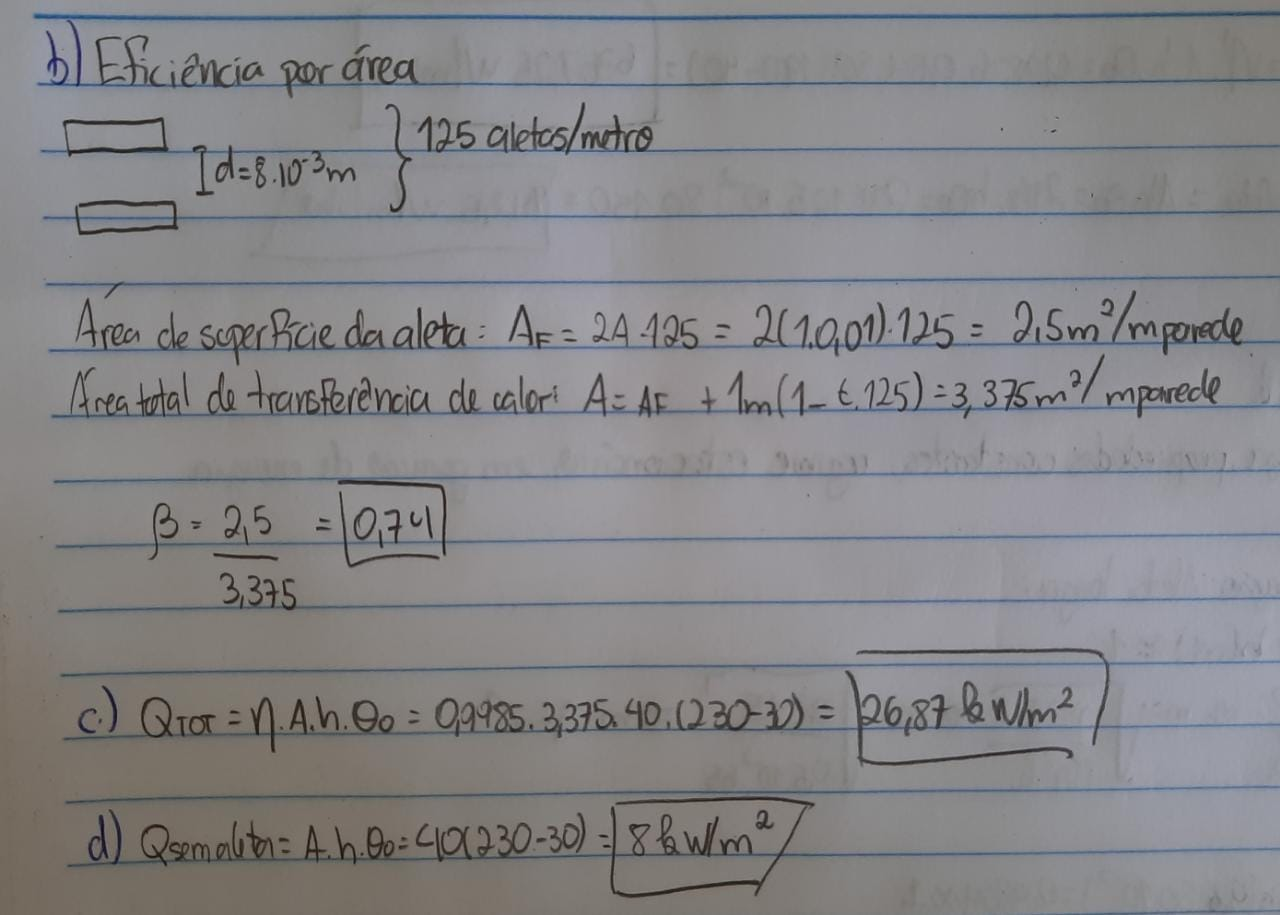 b) Eficiência por área
I d=8.10⁻³m } 125 aletas/metro
Área de superfície da aleta: AF = 2A.125 = 2(1.0,01).125 = 2,5m²/mparede
Área total de transferência de calor: A = AF + 1m(1-t.125) = 3,375m²/mparede
β = 2,5 = 0,741
3,375
c.) QTOT = η.A.h.θo = 0,9985.3,375.40.(230-30) = 26,87 kW/m²
d) Qsemaleta = A.h.θo = 40(230-30) = 8 kW/m²